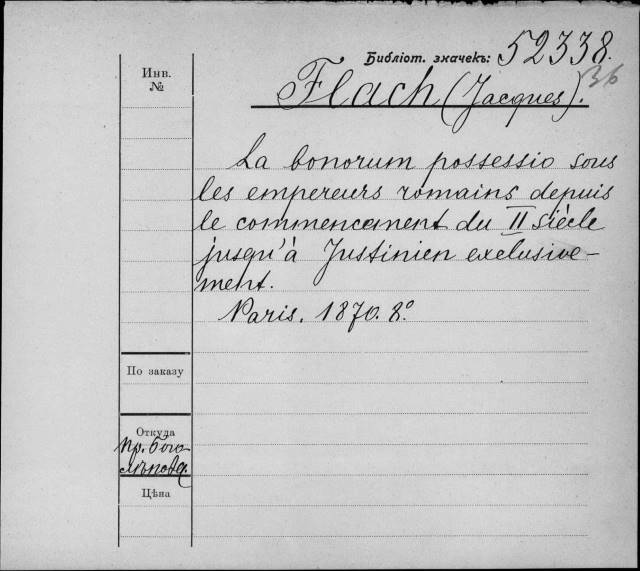 Библіот. значекъ: 52338.
36
Инв.
№
Flach (Jacques).
La bonorum possessio sous
les empereurs romains depuis
le commencement du II siècle
jusqu'à Justinien exclusive-
ment.
Paris. 1870. 8°
По заказу
Откуда
Пр. Бого
лѣпова
Цѣна